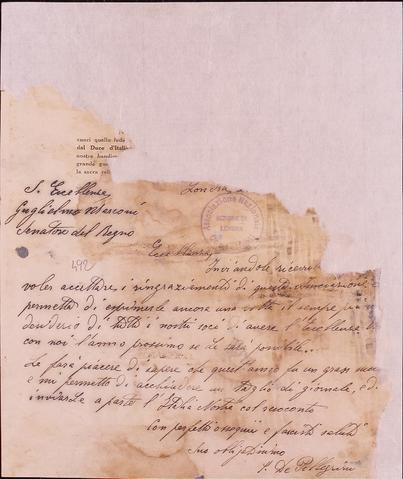 vuori quello fede
dal Duce d'Itali
nostra bandie
grande gue
la sacra reli
S. Eccellenza
Guglielmo Marconi
Senatore del Regno
Londra
Associazione Nazionale
SEZIONE DI
LONDRA
Eccellenza,
492
Inviandole ricevu
voler accettare i ringraziamenti di questa associazione e
permetta di esprimerle ancora una volta il sempre
desiderio di tutti i nostri soci di avere l'Eccellenza
con noi l'anno prossimo se le sarà possibile.
Le farà piacere di sapere che quest'anno fu un gran
e mi permetto di accludere un taglio di giornale, e di
inviarle a parte l'Italia Nostra col resoconto
Con perfetti ossequi e fascisti saluti
Suo obbligatissimo
De Pellegrini